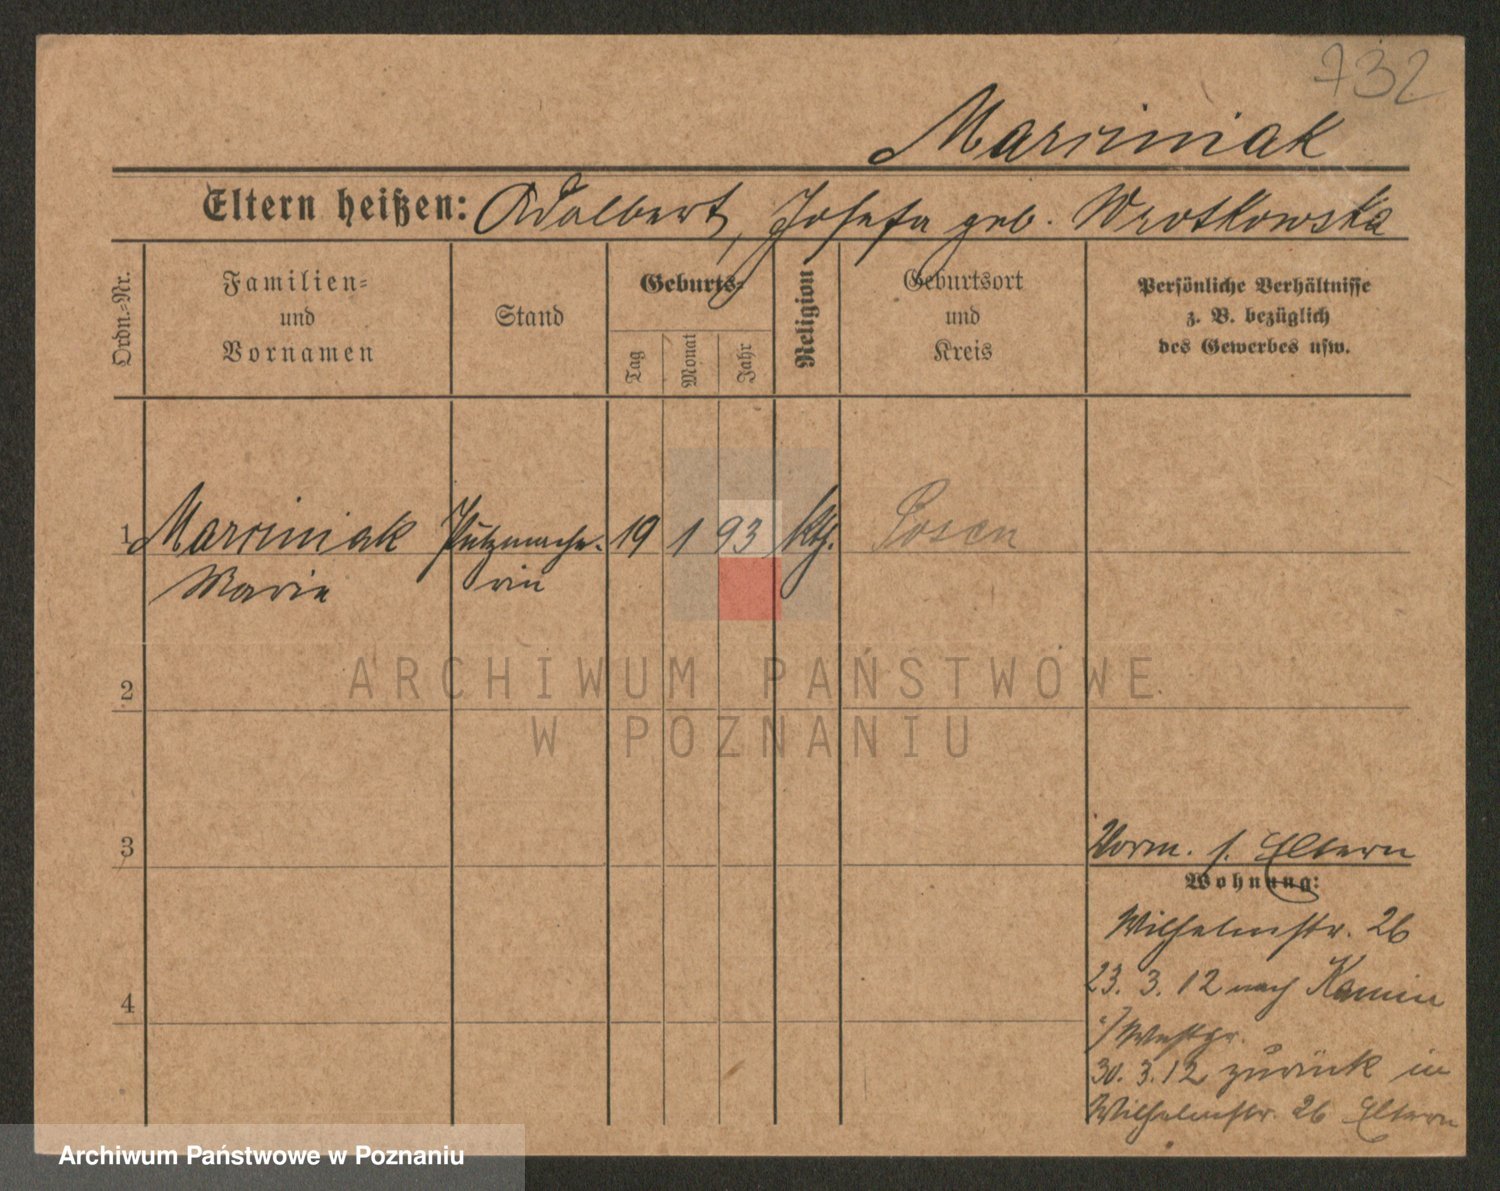 732
Marciniak
Eltern heißen: Adalbert, Josefa geb. Wrotkowska
Ordn.-Nr.
Familien-
und
Vornamen
Stand
Geburts-
Tag
Monat
Jahr
Religion
Geburtsort
und
Kreis
Persönliche Verhältnisse
z. B. bezüglich
des Gewerbes usw.
1 Marciniak Putzmache- 19 1 93 kth. Posen
Marie rin
2
3
4
Vorm. s. Eltern
Wohnung:
Wilhelmstr. 26
23. 3. 12 nach Kamin
i/Westpr.
30. 3. 12 zurück in
Wilhelmstr. 26 Eltern
ARCHIWUM PAŃSTWOWE
W POZNANIU
Archiwum Państwowe w Poznaniu